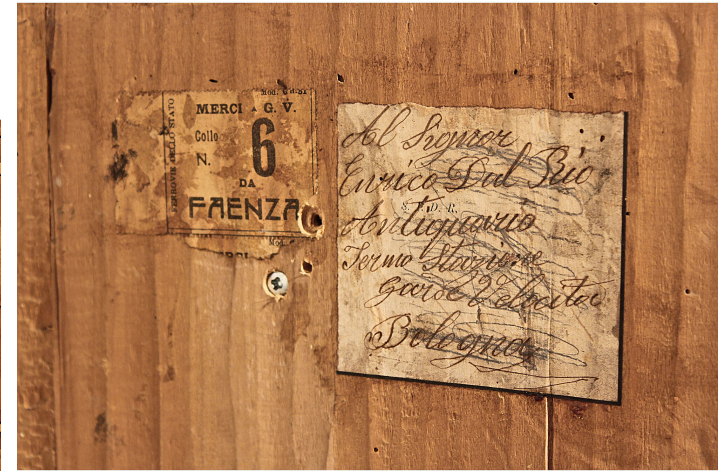 Mod. C
FERROVIE DELLO STATO
MERCI A G. V.
Collo
N.
6
DA
FAENZA
Mod.
Al Signor
Enrico Dal Rio
S. T. D. R.
Antiquario
Fermo Stazione
Bologna